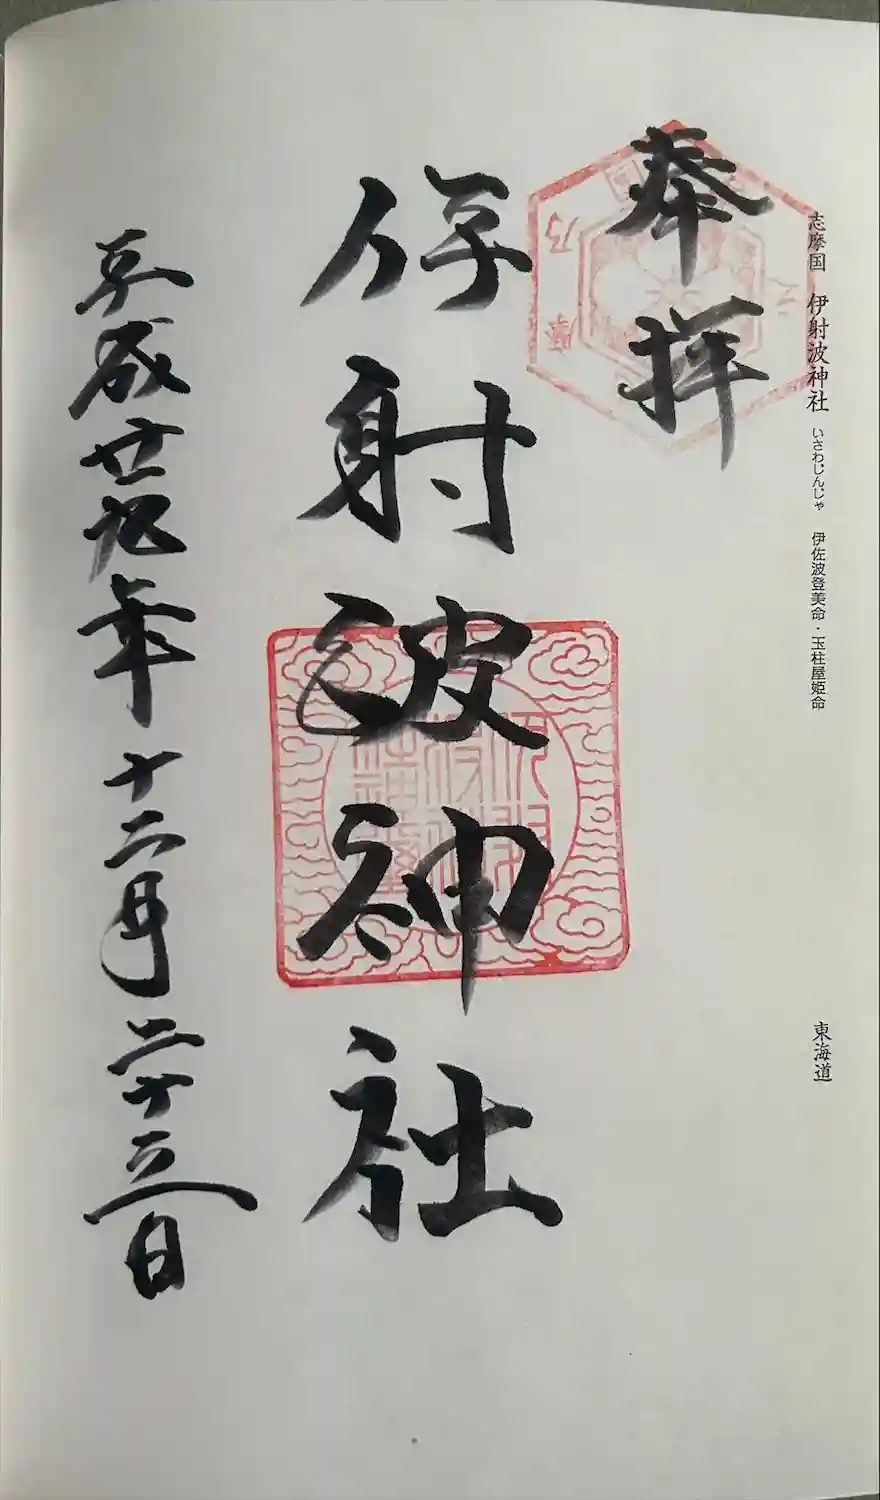 志摩国 伊射波神社 いさわじんじゃ 伊佐波登美命・玉柱屋姫命 東海道
奉拝
伊射波神社
平成廿九年十二月二十三日